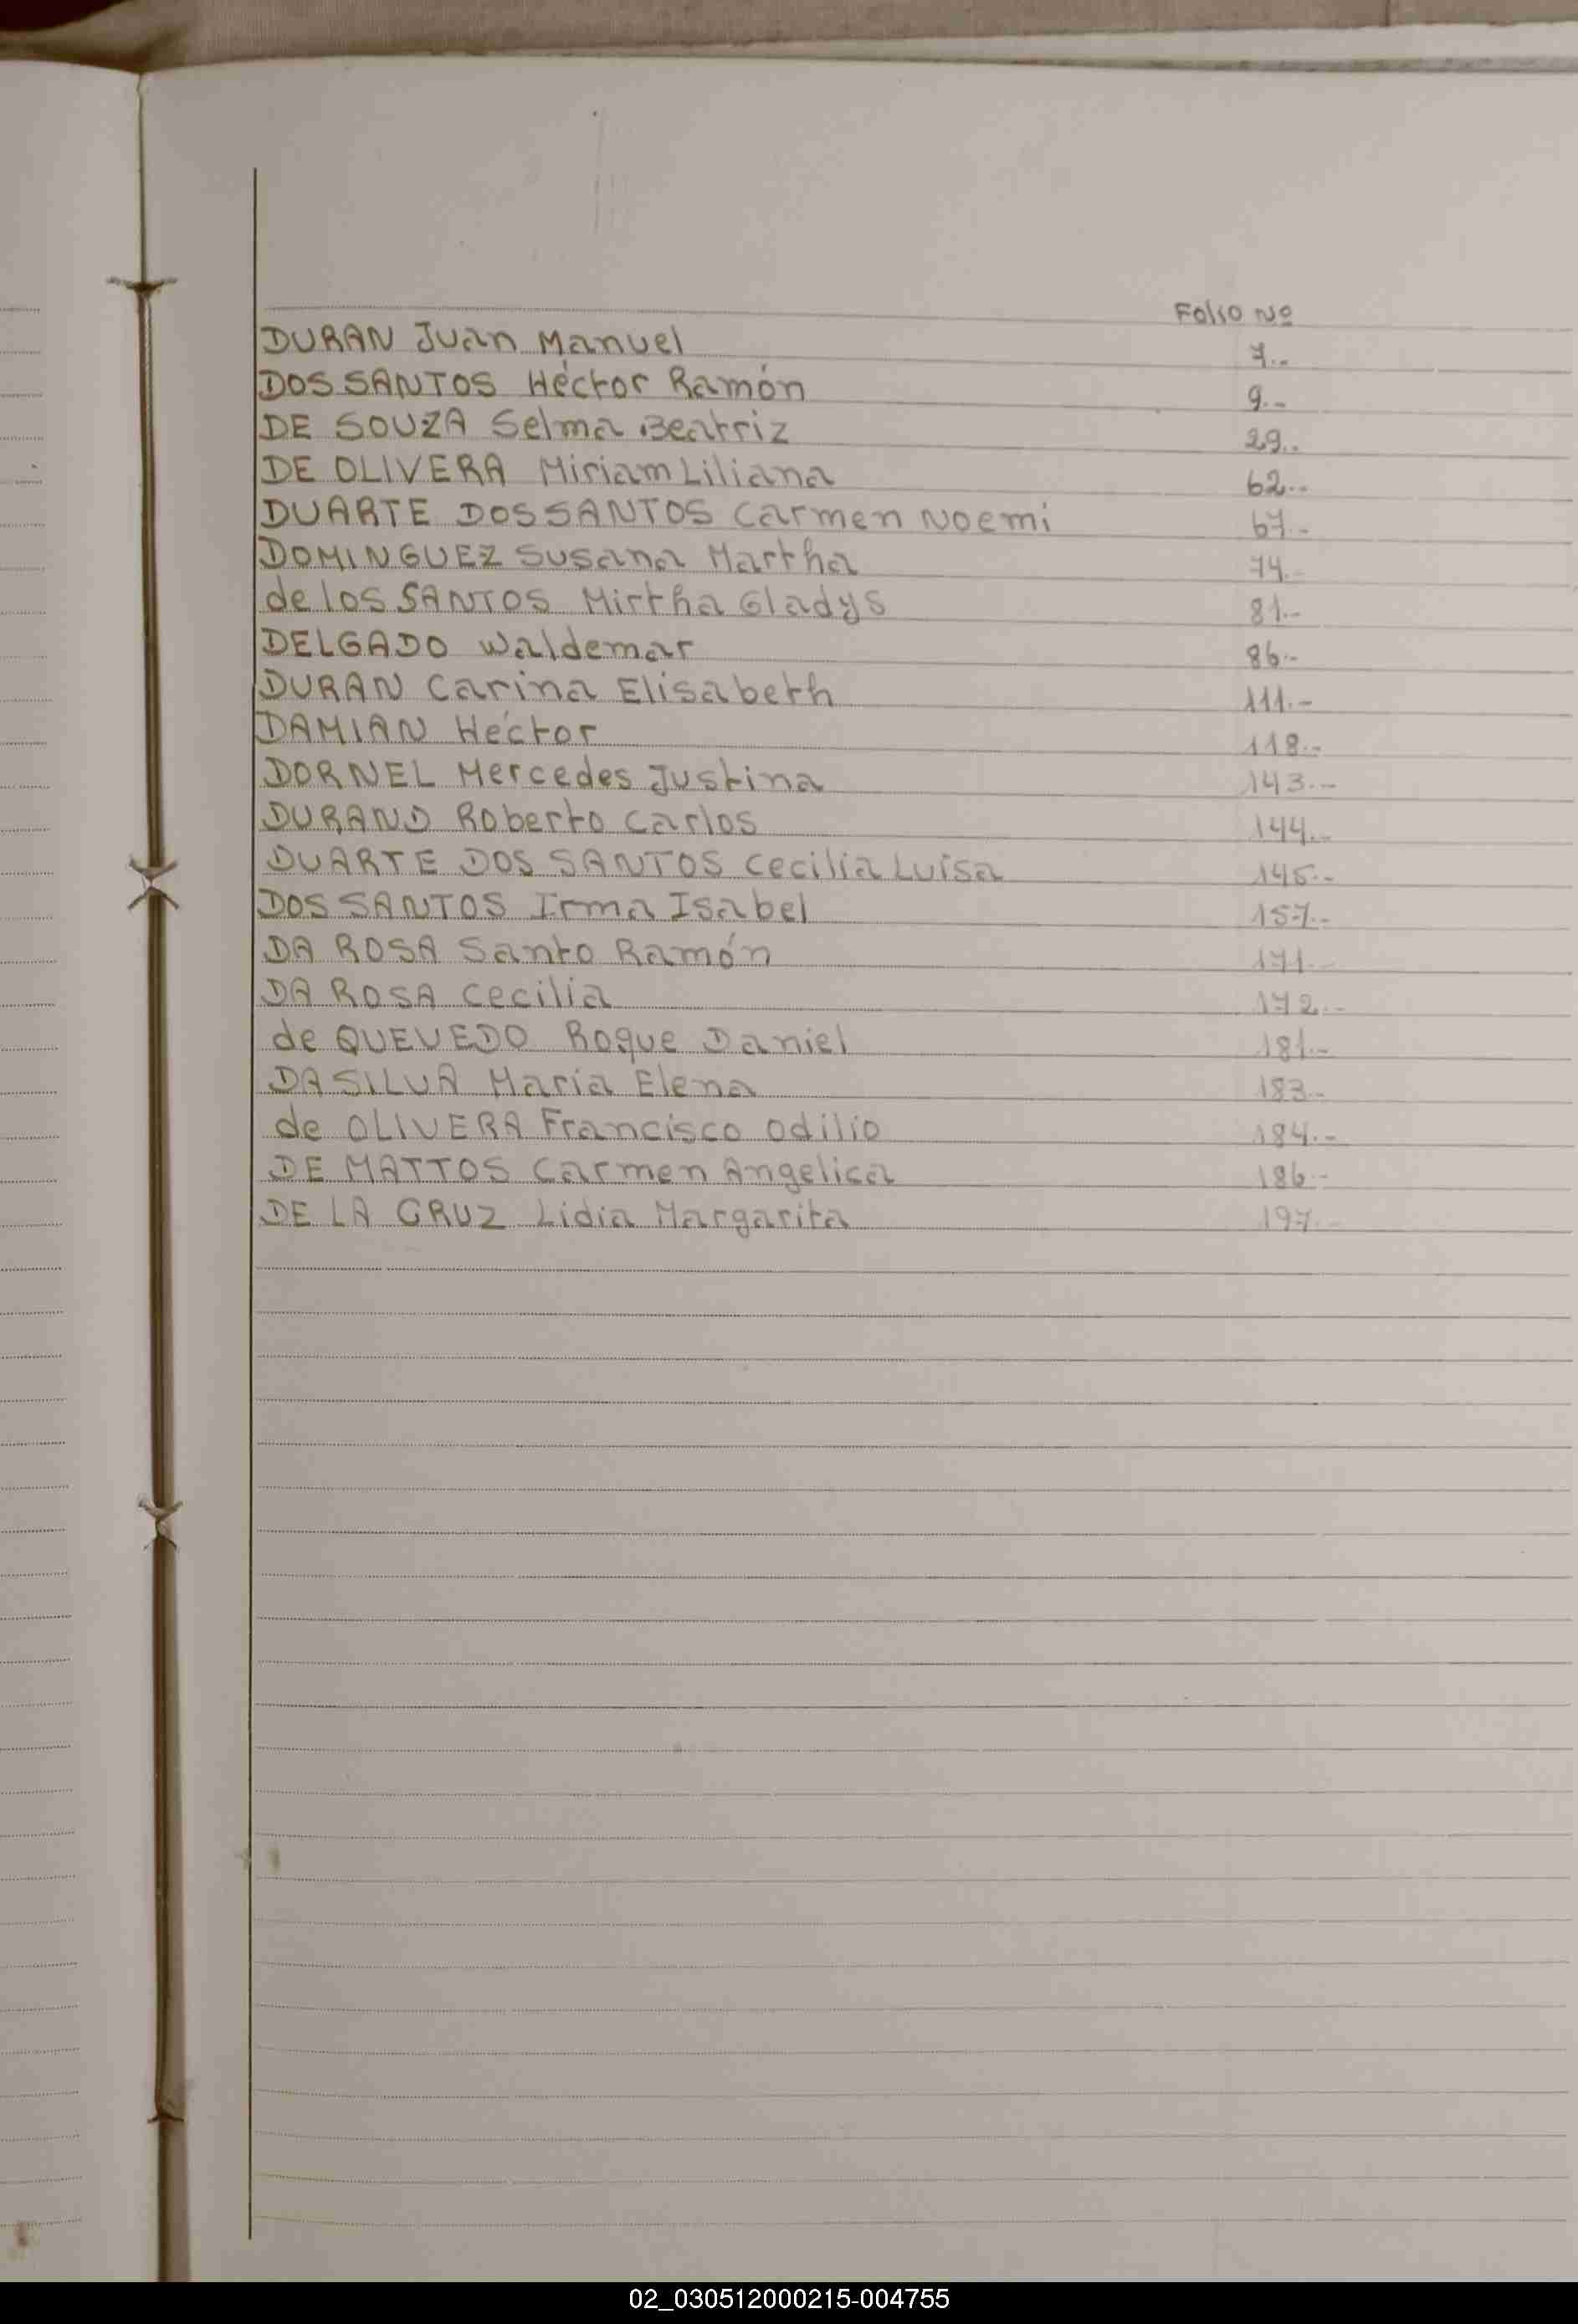 Folio Nº
DURAN Juan Manuel 7.-
DOS SANTOS Héctor Ramón 9.-
DE SOUZA Selma Beatriz 29.-
DE OLIVERA Miriam Liliana 62.-
DUARTE DOS SANTOS Carmen Noemi 67.-
DOMINGUEZ Susana Martha 74.-
de los SANTOS Mirtha Gladys 81.-
DELGADO Waldemar 86.-
DURAN Carina Elisabeth 111.-
DAMIAN Héctor 118.-
DORNEL Mercedes Justina 143.-
DURAND Roberto Carlos 144.-
DUARTE DOS SANTOS Cecilia Luisa 145.-
DOS SANTOS Irma Isabel 157.-
DA ROSA Santo Ramón 171.-
DA ROSA Cecilia 172.-
de QUEVEDO Roque Daniel 181.-
DA SILVA Maria Elena 183.-
de OLIVERA Francisco Odilio 184.-
DE MATTOS Carmen Angelica 186.-
DE LA CRUZ Lidia Margarita 197.-
02_030512000215-004755